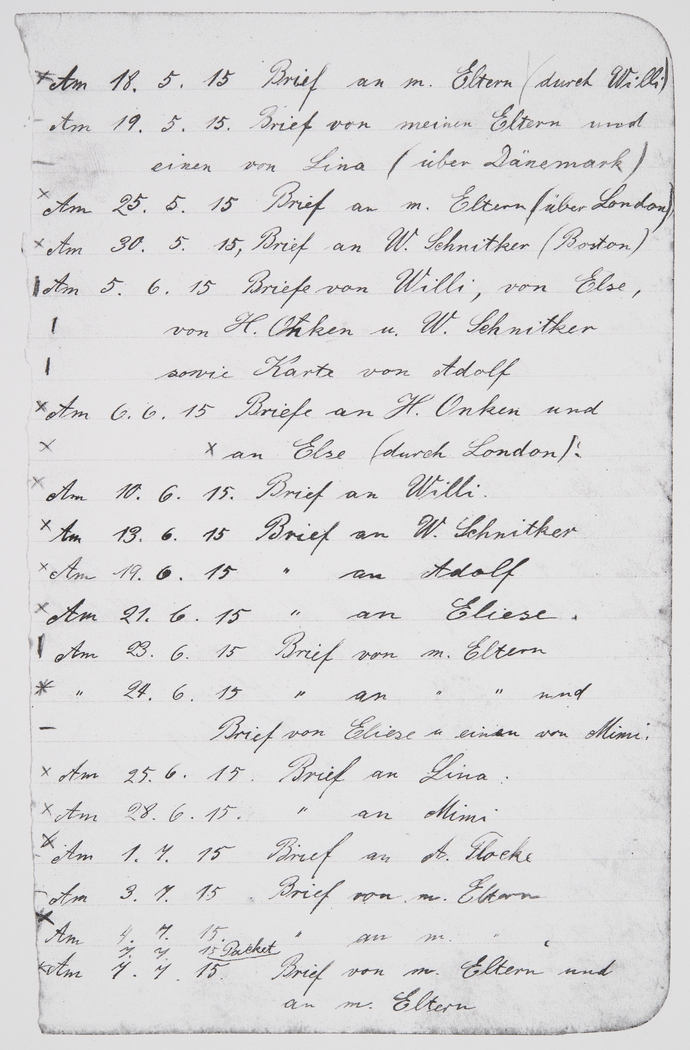 × Am 18. 5. 15 Brief an m. Eltern (durch Willi)
– Am 19. 5. 15. Brief von meinen Eltern und
– einen von Lina (über Dänemark)
× Am 25. 5. 15 Brief an m. Eltern (über London)
× Am 30. 5. 15, Brief an W. Schnitker (Boston)
| Am 5. 6. 15 Briefe von Willi, von Else,
| von H. Onken u. W. Schnitker
| sowie Karte von Adolf
× Am 6. 6. 15 Briefe an H. Onken und
× × an Else (durch London).
× Am 10. 6. 15. Brief an Willi.
× Am 13. 6. 15 Brief an W. Schnitker
× Am 19. 6. 15 " an Adolf
× Am 21. 6. 15 " an Eliese.
| Am 23. 6. 15 Brief von m. Eltern
× " 24. 6. 15 " an " " und
– Brief von Eliese u einen von Mimi.
× Am 25. 6. 15. Brief an Lina.
× Am 28. 6. 15. " an Mimi
× Am 1. 7. 15 Brief an A. Flocke
– Am 3. 7. 15 Brief von m. Eltern
× Am 4. 7. 15. " an m. "
7. 7. 15 Packet
× Am 7. 7. 15. Brief von m. Eltern und
an m. Eltern